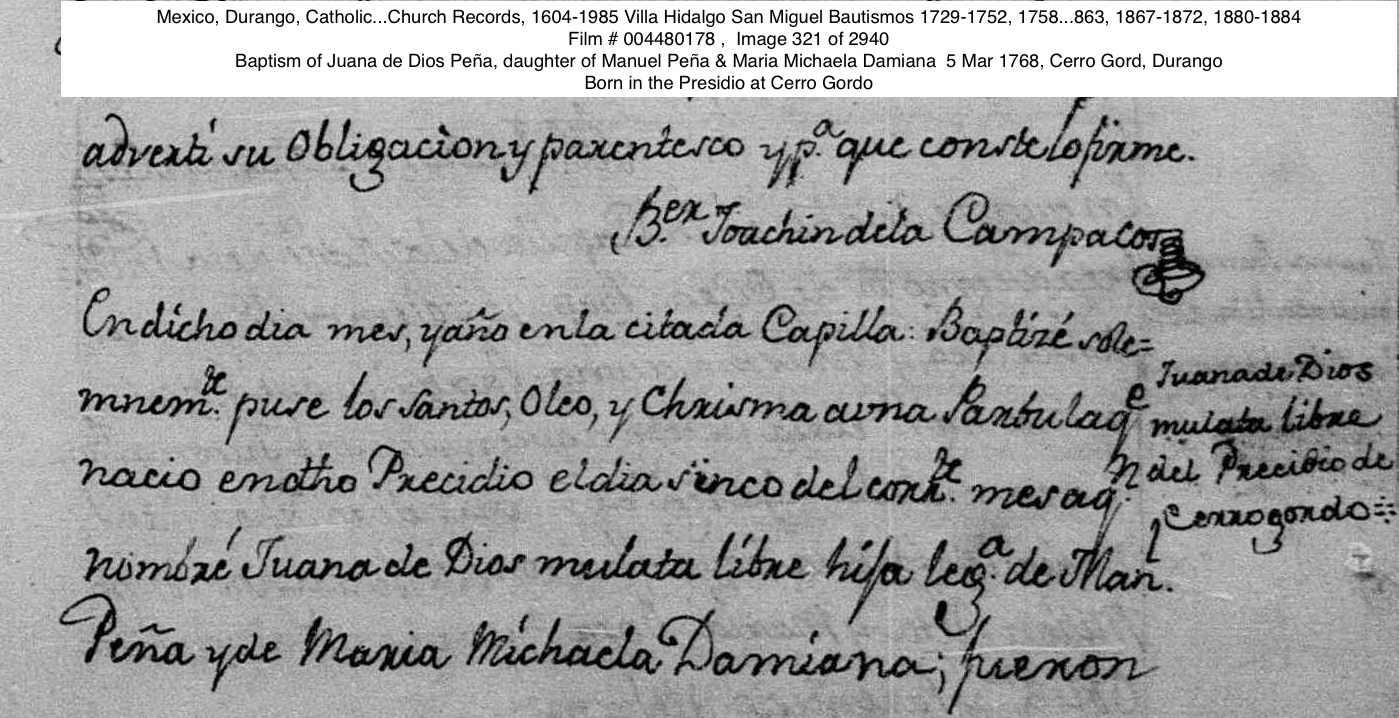 Mexico, Durango, Catholic...Church Records, 1604-1985 Villa Hidalgo San Miguel Bautismos 1729-1752, 1758...863, 1867-1872, 1880-1884
Film # 004480178 , Image 321 of 2940
Baptism of Juana de Dios Peña, daughter of Manuel Peña & Maria Michaela Damiana 5 Mar 1768, Cerro Gord, Durango
Born in the Presidio at Cerro Gordo
adverti su Obligacion y parentesco y p.ª que conste lo firme.
B.er Joachin de la Campa Cos
En dicho dia mes, y año en la citada Capilla: Baptizé sole=
mnem.te puse los Santos, Oleo, y Chrisma a vna Parbula q.e
nacio en dho Precidio el dia sinco del corr.te mes a q.n
nombré Juana de Dios mulata libre hija leg.a de Man.
Peña y de Maria Michaela Damiana; fueron
Juana de Dios
mulata libre
del Precidio de
Cerrogordo